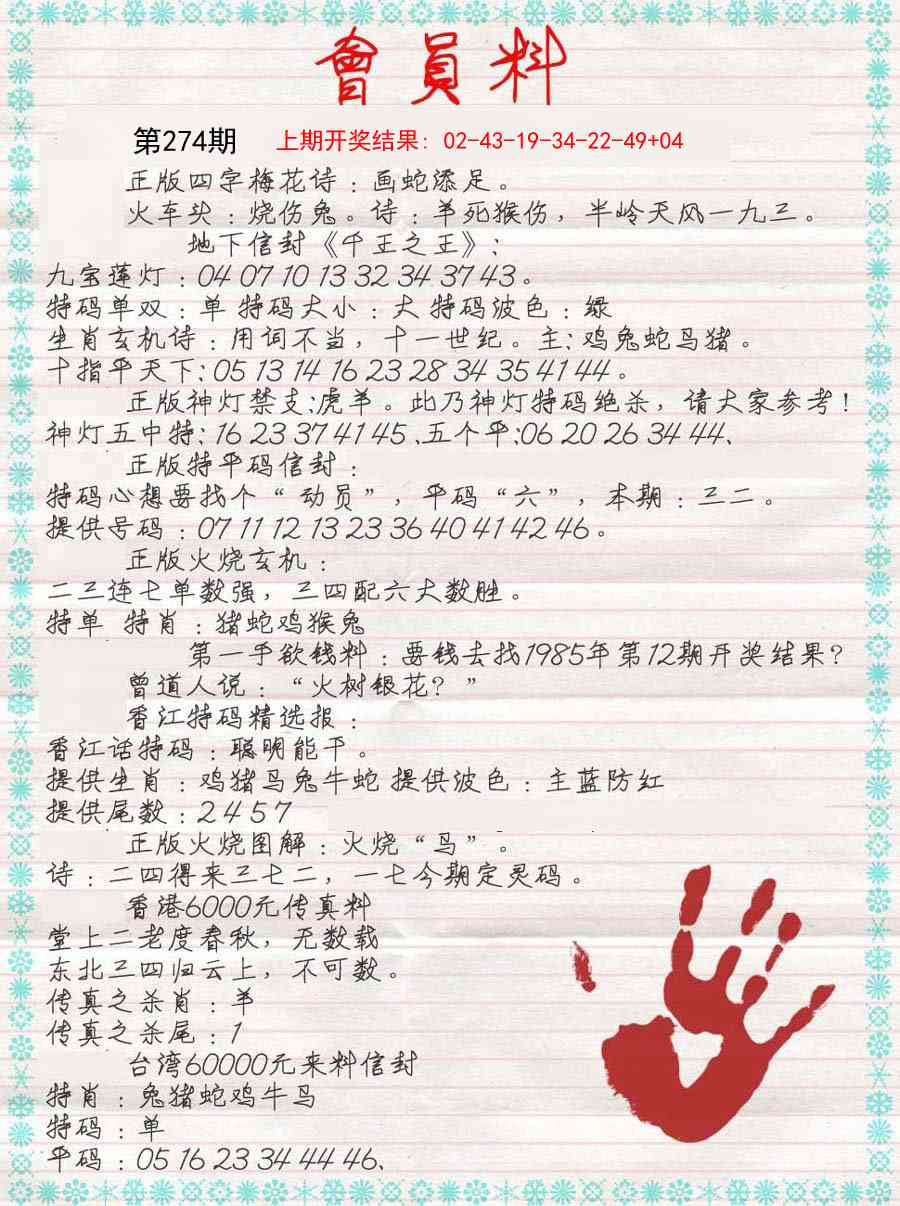 會員料
第274期 上期开奖结果：02-43-19-34-22-49+04
正版四字梅花诗：画蛇添足。
火车头：烧伤兔。诗：羊死猴伤，半岭天风一九三。
地下信封《千王之王》：
九宝莲灯：04 07 10 13 32 34 37 43。
特码单双：单 特码大小：大 特码波色：绿
生肖玄机诗：用词不当，十一世纪。主：鸡兔蛇马猪。
十指平天下：05 13 14 16 23 28 34 35 41 44。
正版神灯禁支:虎羊。此乃神灯特码绝杀，请大家参考！
神灯五中特：16 23 37 41 45、五个平:06 20 26 34 44、
正版特平码信封：
特码心想要找个“动员”，平码“六”，本期：三二。
提供号码：07 11 12 13 23 36 40 41 42 46。
正版火烧玄机：
二三连七单数强，三四配六大数胜。
特单 特肖：猪蛇鸡猴兔
第一手欲钱料：要钱去找1985年第12期开奖结果？
曾道人说：“火树银花？”
香江特码精选报：
香江话特码：聪明能干。
提供生肖：鸡猪马兔牛蛇 提供波色：主蓝防红
提供尾数：2 4 5 7
正版火烧图解：火烧“鸟”。
诗：二四得来三七二，一七今期定灵码。
香港6000元传真料
堂上二老度春秋，无数载
东北三四归云上，不可数。
传真之杀肖：羊
传真之杀尾：1
台湾60000元来料信封
特肖：兔猪蛇鸡牛马
特码：单
平码：05 16 23 34 44 46、